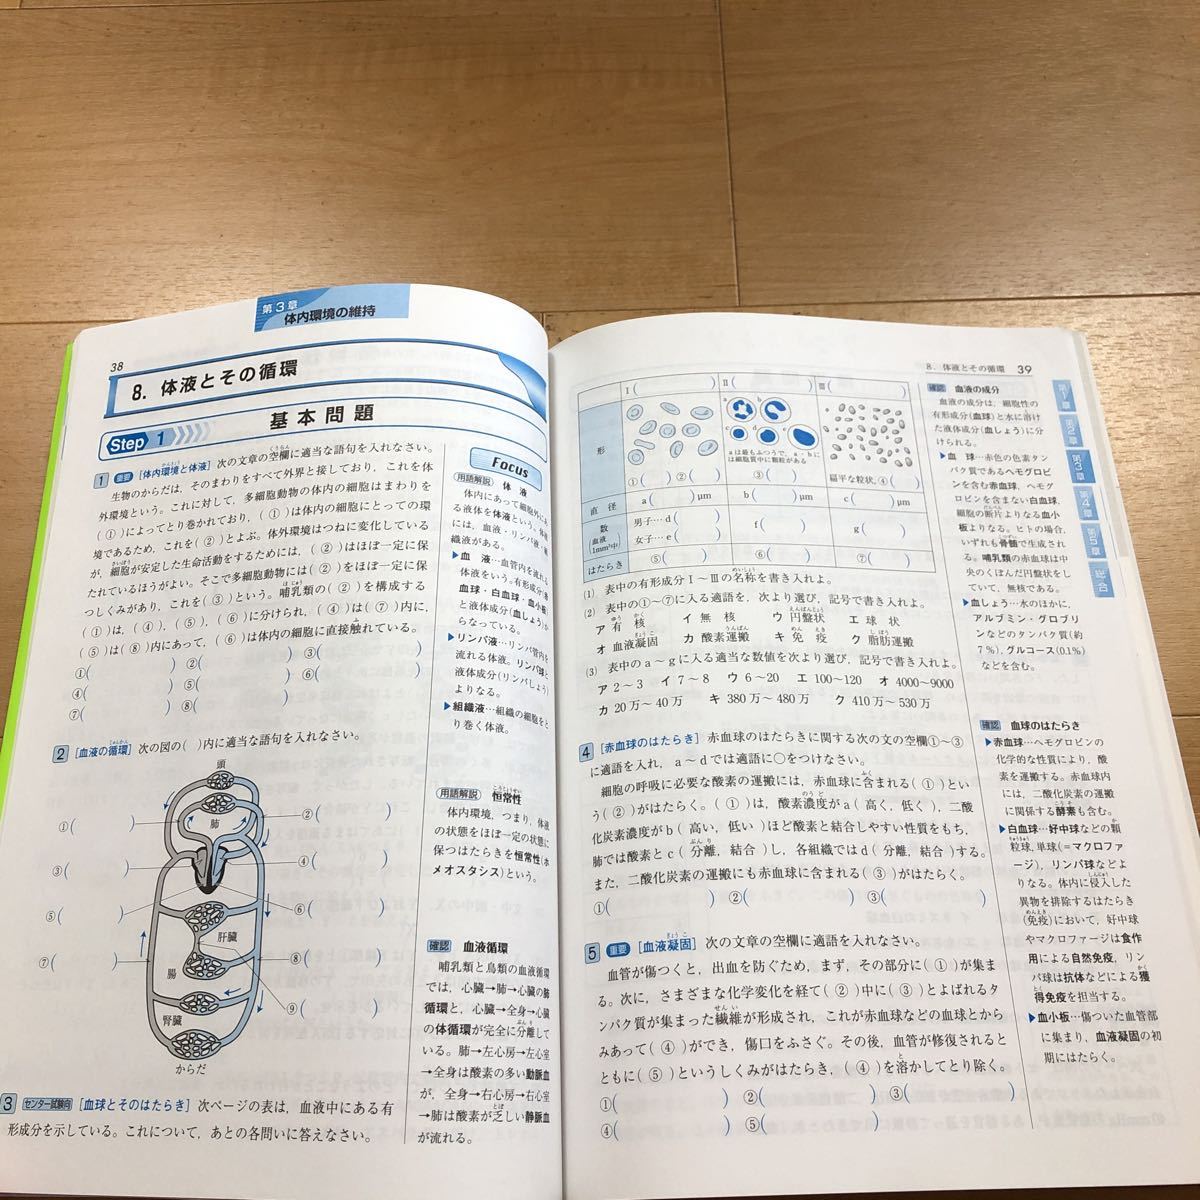 第3章
体内環境の維持
38
8. 体液とその循環
基本問題
Step 1
1 重要 [体内環境と体液] 次の文章の空欄に適当な語句を入れなさい。
生物のからだは，そのまわりをすべて外界と接しており，これを体
外環境という。これに対して，多細胞動物の体内の細胞はまわりを
(①)によってとり巻かれており，(①)は体内の細胞にとっての環
境であるため，これを(②)とよぶ。体外環境はつねに変化している
が，細胞が安定した生命活動をするためには，(②)はほぼ一定に保
たれているほうがよい。そこで多細胞動物には(②)をほぼ一定に保
つしくみがあり，これを(③)という。哺乳類の(②)を構成する
(①)は，(④)，(⑤)，(⑥)に分けられ，(④)は(⑦)内に，
(⑤)は(⑧)内にあって，(⑥)は体内の細胞に直接触れている。
①( ) ②( ) ③( ) ⑥( )
④( ) ⑤( )
⑦( ) ⑧( )
2 [血液の循環] 次の図の( )内に適当な語句を入れなさい。
頭
肺
①( )
②( )
③( )
④( )
⑤( )
⑥( )
肝臓
⑦( )
⑧( )
腸
⑨( )
腎臓
からだ
3 センター試験向 [血球とそのはたらき] 次ページの表は，血液中にある有
形成分を示している。これについて，あとの各問いに答えなさい。
Focus
用語解説 体液
体内にあって細胞外にあ
る液体を体液という。体液
には，血液・リンパ液・組
織液がある。
▶血液…血管内を流れる
体液をいう。有形成分(赤
血球・白血球・血小板)
と液体成分(血しょう)か
らなっている。
▶リンパ液…リンパ管内を
流れる体液。リンパ球と
液体成分(リンパしょう)
よりなる。
▶組織液…組織の細胞をと
り巻く体液。
用語解説 恒常性
体内環境，つまり，体液
の状態をほぼ一定の状態に
保つはたらきを恒常性(ホ
メオスタシス)という。
確認 血液循環
哺乳類と鳥類の血液循環
では，心臓→肺→心臓の肺
循環と，心臓→全身→心臓
の体循環が完全に分離して
いる。肺→左心房→左心室
→全身は酸素の多い動脈血
が，全身→右心房→右心室
→肺は酸素が乏しい静脈血
が流れる。
8. 体液とその循環 39
Ⅰ( ) Ⅱ( ) Ⅲ( )
形
a b
c d e
aは最もふつうで，a・bに
は細胞質中に顆粒がある
①( ) ②( ) ③( ) 扁平な粒状，④( )
直径 a( )μm b( )μm c( )μm
数 (血液1mm³中) 男子…d( ) f( ) g( )
女子…e( )
はたらき ⑤( ) ⑥( ) ⑦( )
(1) 表中の有形成分Ⅰ～Ⅲの名称を書き入れよ。
(2) 表中の①～⑦に入る適語を，次より選び，記号で書き入れよ。
ア 有核 イ 無核 ウ 円盤状 エ 球状
オ 血液凝固 カ 酸素運搬 キ 免疫 ク 脂肪運搬
(3) 表中のa～gに入る適当な数値を次より選び，記号で書き入れよ。
ア 2～3 イ 7～8 ウ 6～20 エ 100～120 オ 4000～9000
カ 20万～40万 キ 380万～480万 ク 410万～530万
4 [赤血球のはたらき] 赤血球のはたらきに関する次の文の空欄①～③
に適語を入れ，a～dでは適語に○をつけなさい。
細胞の呼吸に必要な酸素の運搬には，赤血球に含まれる(①)とい
う(②)がはたらく。(①)は，酸素濃度がa(高く，低く)，二酸
化炭素濃度がb(高い，低い)ほど酸素と結合しやすい性質をもち，
肺では酸素とc(分離，結合)し，各組織ではd(分離，結合)する。
また，二酸化炭素の運搬にも赤血球に含まれる(③)がはたらく。
①( ) ②( ) ③( )
5 重要 [血液凝固] 次の文章の空欄に適語を入れなさい。
血管が傷つくと，出血を防ぐため，まず，その部分に(①)が集ま
る。次に，さまざまな化学変化を経て(②)中に(③)とよばれるタ
ンパク質が集まった繊維が形成され，これが赤血球などの血球とから
みあって(④)ができ，傷口をふさぐ。その後，血管が修復されると
ともに(⑤)というしくみがはたらき，(④)を溶かしてとり除く。
①( ) ②( ) ③( )
④( ) ⑤( )
確認 血液の成分
血液の成分は，細胞性の
有形成分(血球)と水に溶け
た液体成分(血しょう)に分
けられる。
▶血球…赤色の色素タン
パク質であるヘモグロビ
ンを含む赤血球，ヘモグ
ロビンを含まない白血球，
細胞の断片よりなる血小
板よりなる。ヒトの場合，
いずれも骨髄で生成され
る。哺乳類の赤血球は中
央のくぼんだ円盤状をし
ていて，無核である。
▶血しょう…水のほかに，
アルブミン・グロブリ
ンなどのタンパク質(約
7%)，グルコース(0.1%)
などを含む。
確認 血球のはたらき
▶赤血球…ヘモグロビンの
化学的な性質により，酸
素を運搬する。赤血球内
には，二酸化炭素の運搬
に関係する酵素も含む。
▶白血球…好中球などの顆
粒球，単球(=マクロファ
ージ)，リンパ球などよ
りなる。体内に侵入した
異物を排除するはたらき
(免疫)において，好中球
やマクロファージは食作
用による自然免疫，リン
パ球は抗体などによる獲
得免疫を担当する。
▶血小板…傷ついた血管部
に集まり，血液凝固の初
期にはたらく。
第1章
第2章
第3章
第4章
第5章
総合